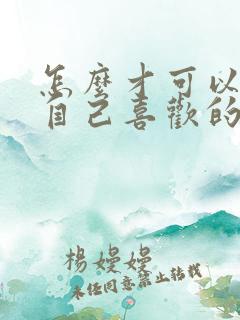 怎麼才可以
自己喜歡的
楊嫚嫚
未經同意禁止轉載